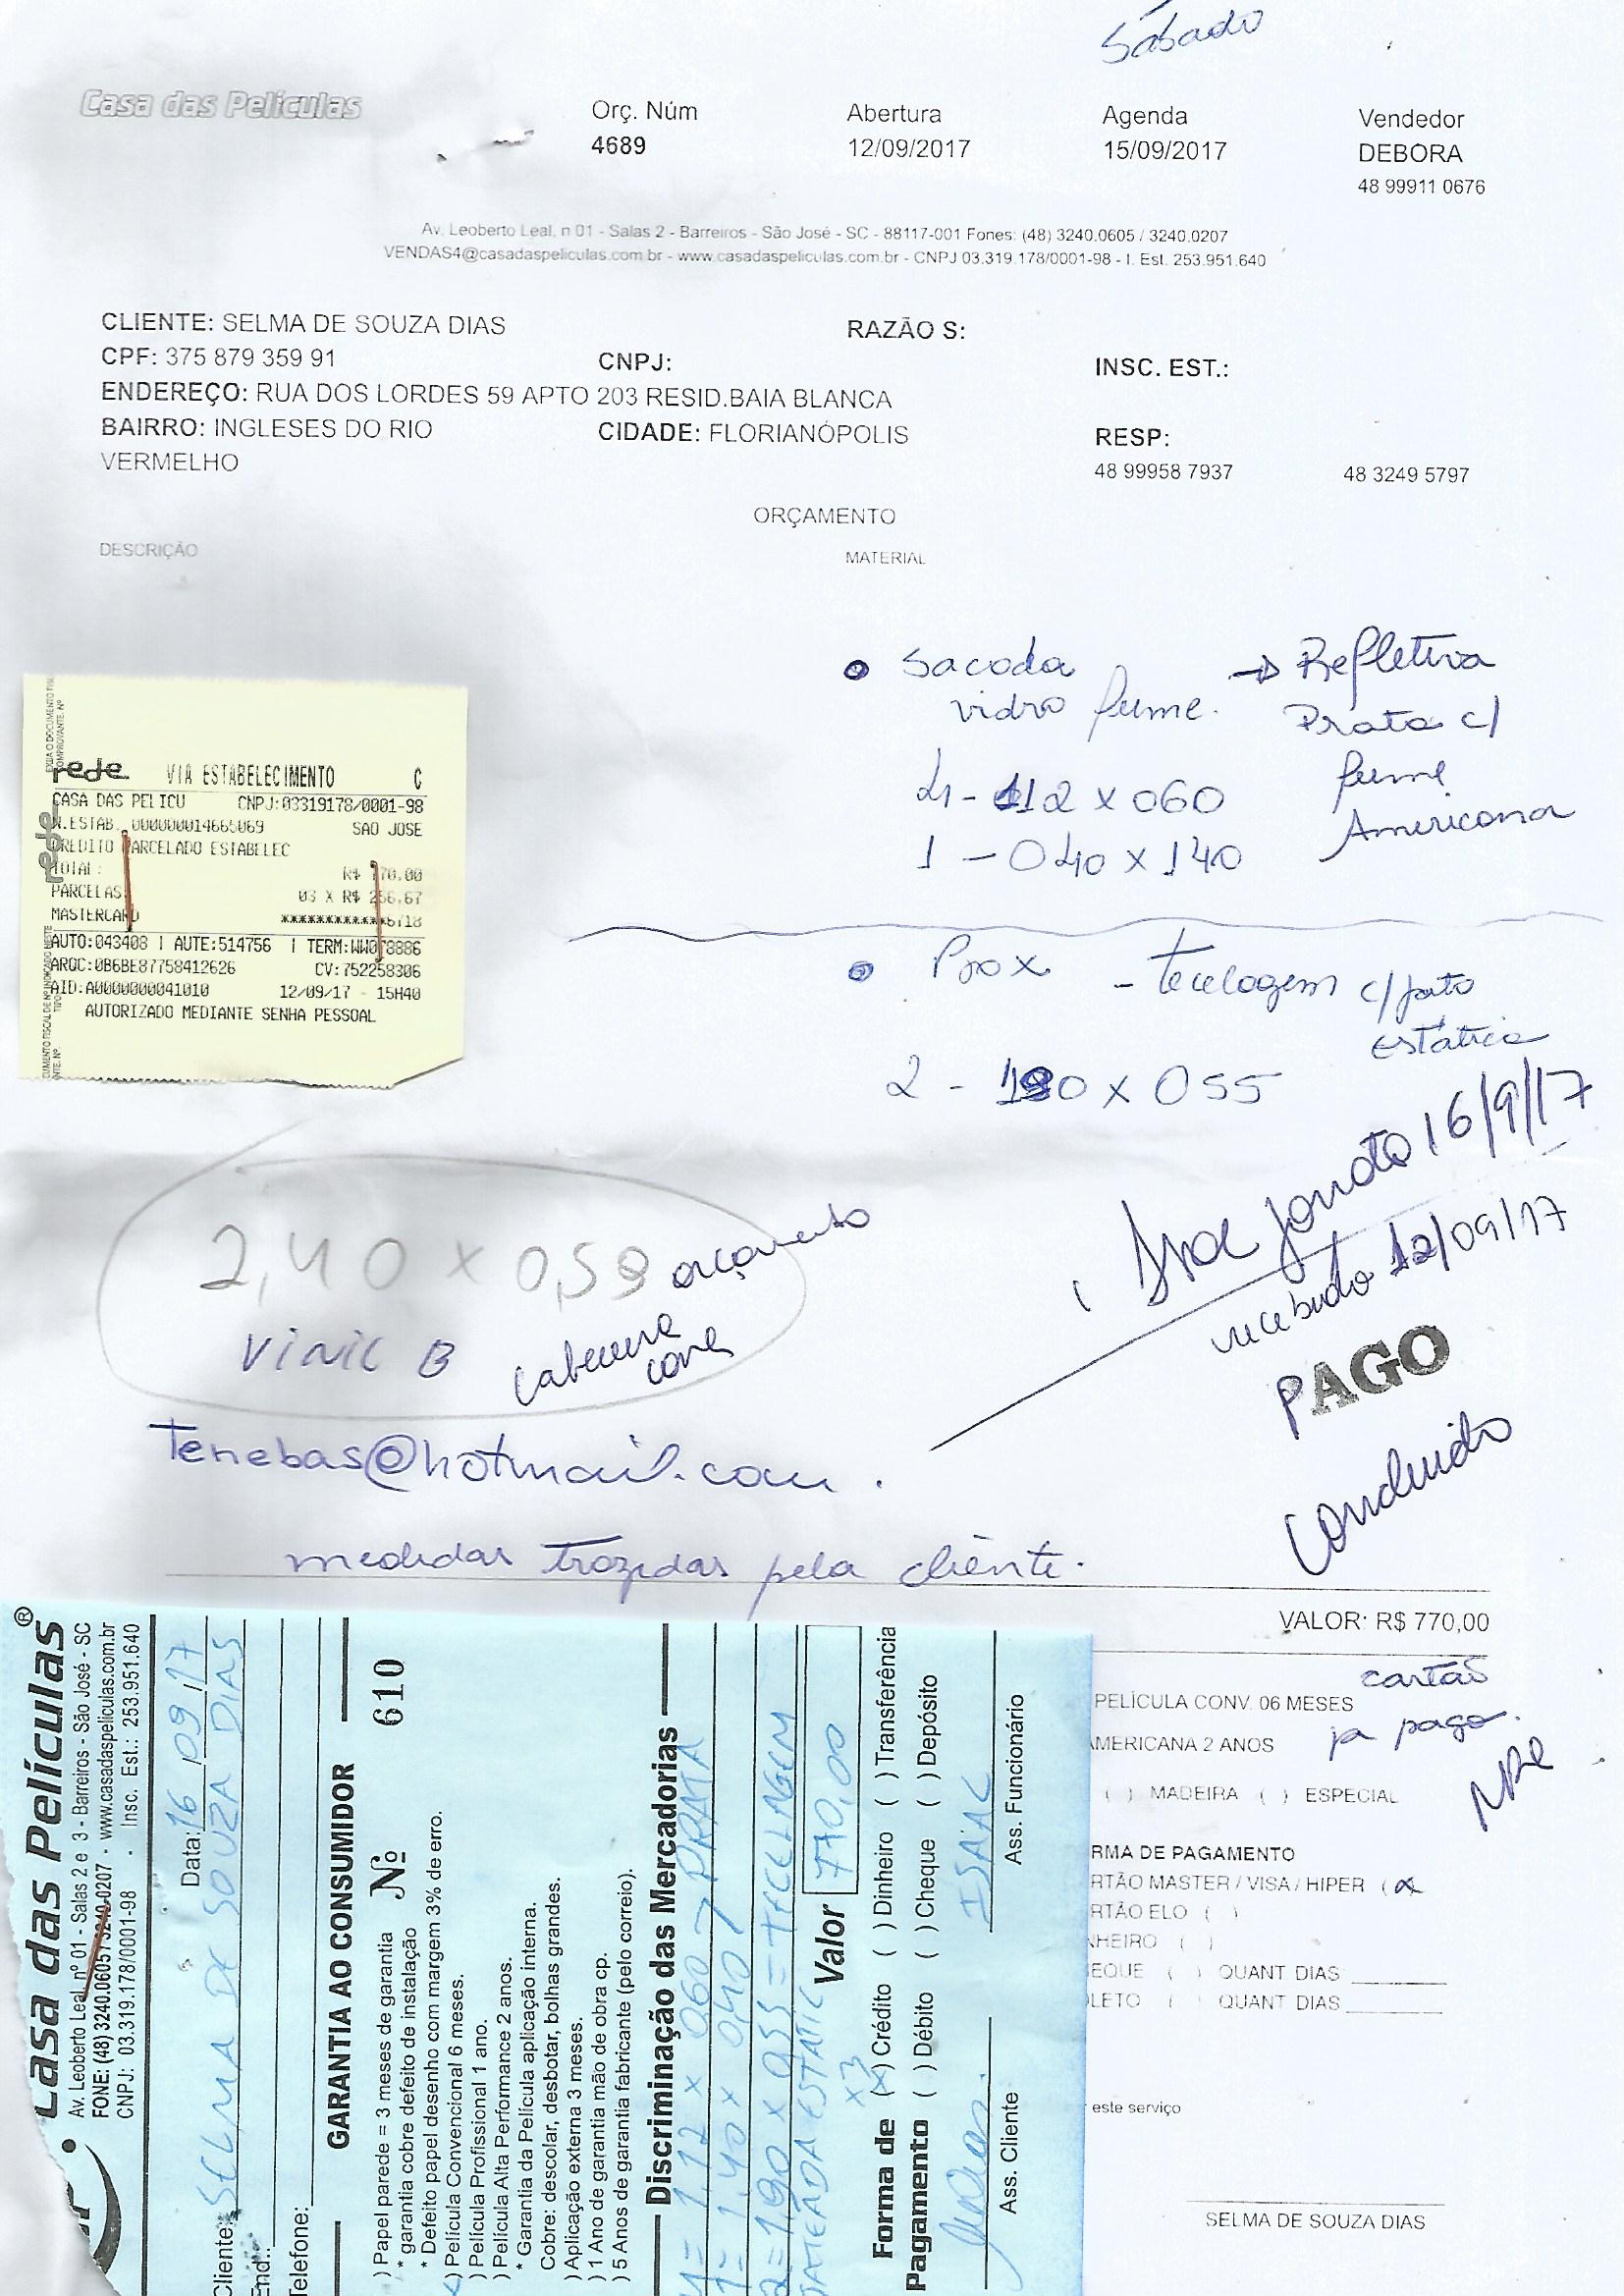 Sábado
Casa das Películas
Orç. Núm Abertura Agenda Vendedor
4689 12/09/2017 15/09/2017 DEBORA
48 99911 0676
Av. Leoberto Leal, n 01 - Salas 2 - Barreiros - São José - SC - 88117-001 Fones: (48) 3240.0605 / 3240.0207
VENDAS4@casadaspeliculas.com.br - www.casadaspeliculas.com.br - CNPJ 03.319.178/0001-98 - I. Est. 253.951.640
CLIENTE: SELMA DE SOUZA DIAS RAZÃO S:
CPF: 375 879 359 91 CNPJ: INSC. EST.:
ENDEREÇO: RUA DOS LORDES 59 APTO 203 RESID.BAIA BLANCA
BAIRRO: INGLESES DO RIO CIDADE: FLORIANÓPOLIS RESP:
VERMELHO 48 99958 7937 48 3249 5797
ORÇAMENTO
DESCRIÇÃO MATERIAL
• Sacada → Refletiva
vidro fume. Prata c/
4 - 112 x 060 fume
1 - 040 x 140 Americana
rede VIA ESTABELECIMENTO C
CASA DAS PELICU CNPJ:03319178/0001-98
N.ESTAB. 000000014665069 SAO JOSE
CREDITO PARCELADO ESTABELEC
TOTAL: R$ 770.00
PARCELAS: 03 X R$ 256.67
MASTERCARD ************6718
AUTO:043408 | AUTE:514756 | TERM:WW078886
ARQC:0B6BE87758412626 CV:752258306
AID:A0000000041010 12/09/17 - 15H40
AUTORIZADO MEDIANTE SENHA PESSOAL
• Box - tecelagem c/ jato
estática
2 - 190 x 055
16/9/17
recebido 12/09/17
PAGO
Concluido
2,40 x 0,59 orçamento
Vinil B cabeceira
cama
tenebas@hotmail.com.
medidas trazidas pela cliente.
VALOR: R$ 770,00
cartão
PELÍCULA CONV. 06 MESES
já pago.
MERICANA 2 ANOS
( ) MADEIRA ( ) ESPECIAL
RMA DE PAGAMENTO
RTÃO MASTER / VISA / HIPER (x
RTÃO ELO ( )
NHEIRO ( )
EQUE ( ) QUANT DIAS
LETO ( ) QUANT DIAS
este serviço
SELMA DE SOUZA DIAS
Casa das Películas®
Av. Leoberto Leal, nº 01 - Salas 2 e 3 - Barreiros - São José - SC
FONE: (48) 3240.0605 / 3240-0207 - www.casadaspeliculas.com.br
CNPJ: 03.319.178/0001-98 - Insc. Est.: 253.951.640
Data: 16/09/17
Cliente: SELMA DE SOUZA DIAS
End.:
Telefone:
GARANTIA AO CONSUMIDOR
) Papel parede = 3 meses de garantia Nº 610
* garantia cobre defeito de instalação
* Defeito papel desenho com margem 3% de erro.
) Película Convencional 6 meses.
) Película Profissional 1 ano.
) Película Alta Performance 2 anos.
* Garantia da Película aplicação interna.
Cobre: descolar, desbotar, bolhas grandes.
) Aplicação externa 3 meses.
) 1 Ano de garantia mão de obra cp.
) 5 Anos de garantia fabricante (pelo correio).
Discriminação das Mercadorias
4 = 1,12 x 0,60 > PRATA
1 = 1,40 x 0,40
2 = 1,90 x 0,55 = TECELAGEM
JATEADA ESTATIC
Valor 770,00
x3
Forma de (x) Crédito ( ) Dinheiro ( ) Transferência
Pagamento ( ) Débito ( ) Cheque ( ) Depósito
ISAAC
Ass. Cliente Ass. Funcionário